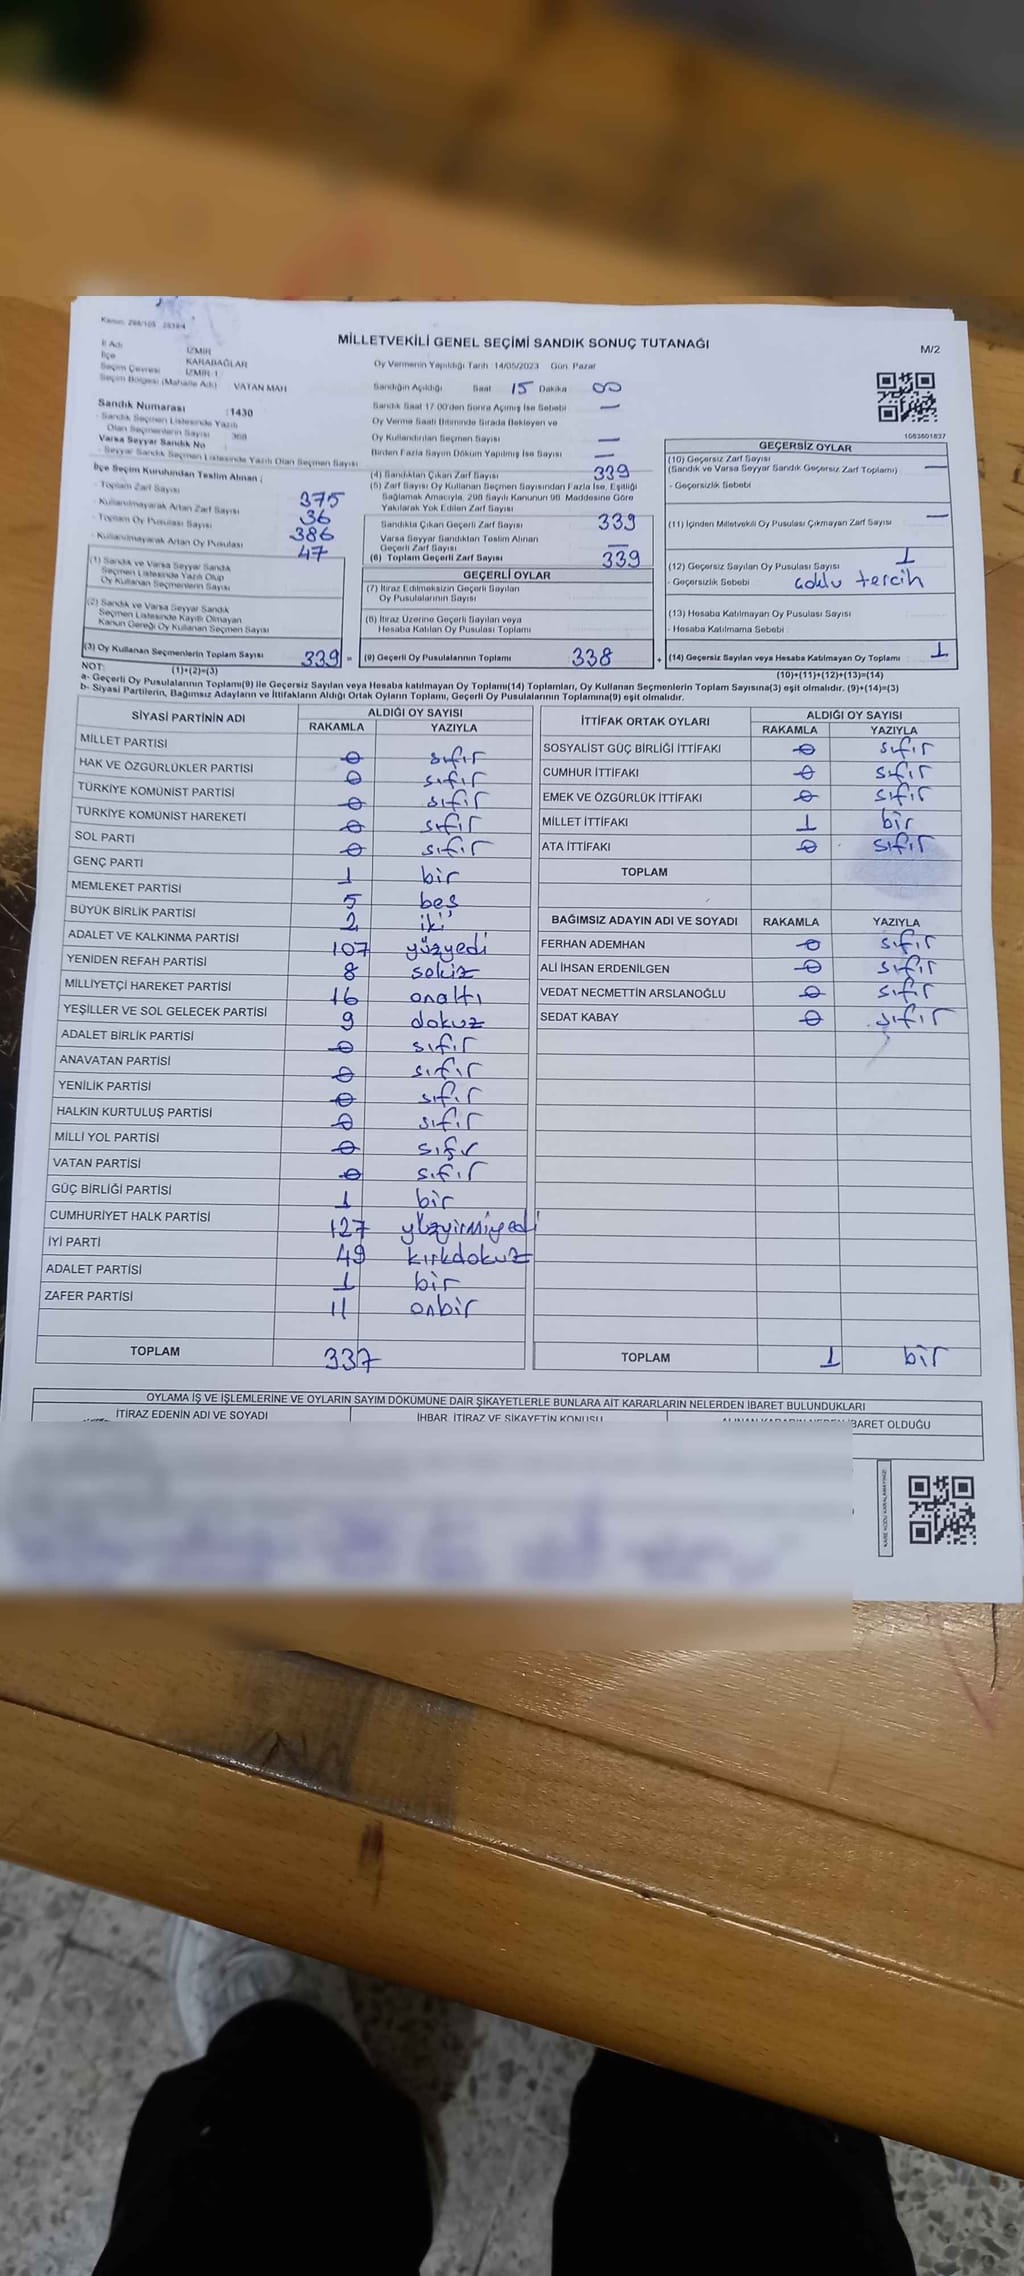 Kanun: 298/105 2839/4
MİLLETVEKİLİ GENEL SEÇİMİ SANDIK SONUÇ TUTANAĞI
M/2
İl Adı İZMİR
İlçe KARABAĞLAR
Seçim Çevresi İZMİR-1
Seçim Bölgesi (Mahalle Adı) VATAN MAH
Oy Vermenin Yapıldığı Tarih 14/05/2023 Gün Pazar
Sandığın Açıldığı Saat 15 Dakika 00
Sandık Saat 17.00'den Sonra Açılmış İse Sebebi —
Oy Verme Saati Bitiminde Sırada Bekleyen ve
Oy Kullandırılan Seçmen Sayısı —
Birden Fazla Sayım Döküm Yapılmış İse Sayısı —
Sandık Numarası : 1430
- Sandık Seçmen Listesinde Yazılı
Olan Seçmenlerin Sayısı 368
Varsa Seyyar Sandık No
- Seyyar Sandık Seçmen Listesinde Yazılı Olan Seçmen Sayısı
İlçe Seçim Kurulundan Teslim Alınan ;
- Toplam Zarf Sayısı 375
- Kullanılmayarak Artan Zarf Sayısı 36
- Toplam Oy Pusulası Sayısı 386
- Kullanılmayarak Artan Oy Pusulası 47
(1) Sandık ve Varsa Seyyar Sandık
Seçmen Listesinde Yazılı Olup
Oy Kullanan Seçmenlerin Sayısı
(2) Sandık ve Varsa Seyyar Sandık
Seçmen Listesinde Kayıtlı Olmayan
Kanun Gereği Oy Kullanan Seçmen Sayısı
(3) Oy Kullanan Seçmenlerin Toplam Sayısı 339 =
(1)+(2)=(3)
(4) Sandıktan Çıkan Zarf Sayısı 339
(5) Zarf Sayısı Oy Kullanan Seçmen Sayısından Fazla İse, Eşitliği
Sağlamak Amacıyla, 298 Sayılı Kanunun 98. Maddesine Göre
Yakılarak Yok Edilen Zarf Sayısı
Sandıkta Çıkan Geçerli Zarf Sayısı 339
Varsa Seyyar Sandıktan Teslim Alınan
Geçerli Zarf Sayısı —
(6) Toplam Geçerli Zarf Sayısı 339
GEÇERLİ OYLAR
(7) İtiraz Edilmeksizin Geçerli Sayılan
Oy Pusulalarının Sayısı
(8) İtiraz Üzerine Geçerli Sayılan veya
Hesaba Katılan Oy Pusulası Toplamı
(9) Geçerli Oy Pusulalarının Toplamı 338 +
1083601837
GEÇERSİZ OYLAR
(10) Geçersiz Zarf Sayısı
(Sandık ve Varsa Seyyar Sandık Geçersiz Zarf Toplamı) —
- Geçersizlik Sebebi
(11) İçinden Milletvekili Oy Pusulası Çıkmayan Zarf Sayısı —
(12) Geçersiz Sayılan Oy Pusulası Sayısı 1
- Geçersizlik Sebebi çoklu tercih
(13) Hesaba Katılmayan Oy Pusulası Sayısı
- Hesaba Katılmama Sebebi
(14) Geçersiz Sayılan veya Hesaba Katılmayan Oy Toplamı 1
(10)+(11)+(12)+(13)=(14)
NOT:
a- Geçerli Oy Pusulalarının Toplamı(9) ile Geçersiz Sayılan veya Hesaba katılmayan Oy Toplamı(14) Toplamları, Oy Kullanan Seçmenlerin Toplam Sayısına(3) eşit olmalıdır. (9)+(14)=(3)
b- Siyasi Partilerin, Bağımsız Adayların ve İttifakların Aldığı Ortak Oyların Toplamı, Geçerli Oy Pusulalarının Toplamına(9) eşit olmalıdır.
SİYASİ PARTİNİN ADI ALDIĞI OY SAYISI
RAKAMLA YAZIYLA
MİLLET PARTİSİ 0 sıfır
HAK VE ÖZGÜRLÜKLER PARTİSİ 0 sıfır
TÜRKİYE KOMÜNİST PARTİSİ 0 sıfır
TÜRKİYE KOMÜNİST HAREKETİ 0 sıfır
SOL PARTİ 0 sıfır
GENÇ PARTİ 1 bir
MEMLEKET PARTİSİ 5 beş
BÜYÜK BİRLİK PARTİSİ 2 iki
ADALET VE KALKINMA PARTİSİ 107 yüzyedi
YENİDEN REFAH PARTİSİ 8 sekiz
MİLLİYETÇİ HAREKET PARTİSİ 16 onaltı
YEŞİLLER VE SOL GELECEK PARTİSİ 9 dokuz
ADALET BİRLİK PARTİSİ 0 sıfır
ANAVATAN PARTİSİ 0 sıfır
YENİLİK PARTİSİ 0 sıfır
HALKIN KURTULUŞ PARTİSİ 0 sıfır
MİLLİ YOL PARTİSİ 0 sıfır
VATAN PARTİSİ 0 sıfır
GÜÇ BİRLİĞİ PARTİSİ 1 bir
CUMHURİYET HALK PARTİSİ 127 yüzyirmiyedi
İYİ PARTİ 49 kırkdokuz
ADALET PARTİSİ 1 bir
ZAFER PARTİSİ 11 onbir
TOPLAM 337
İTTİFAK ORTAK OYLARI ALDIĞI OY SAYISI
RAKAMLA YAZIYLA
SOSYALİST GÜÇ BİRLİĞİ İTTİFAKI 0 sıfır
CUMHUR İTTİFAKI 0 sıfır
EMEK VE ÖZGÜRLÜK İTTİFAKI 0 sıfır
MİLLET İTTİFAKI 1 bir
ATA İTTİFAKI 0 sıfır
TOPLAM
BAĞIMSIZ ADAYIN ADI VE SOYADI RAKAMLA YAZIYLA
FERHAN ADEMHAN 0 sıfır
ALİ İHSAN ERDENİLGEN 0 sıfır
VEDAT NECMETTİN ARSLANOĞLU 0 sıfır
SEDAT KABAY 0 sıfır
TOPLAM 1 bir
OYLAMA İŞ VE İŞLEMLERİNE VE OYLARIN SAYIM DÖKÜMÜNE DAİR ŞİKAYETLERLE BUNLARA AİT KARARLARIN NELERDEN İBARET BULUNDUKLARI
İTİRAZ EDENİN ADI VE SOYADI İHBAR, İTİRAZ VE ŞİKAYETİN KONUSU ALINAN KARARIN NEDEN İBARET OLDUĞU
KARE KODU KARALAMAYINIZ!